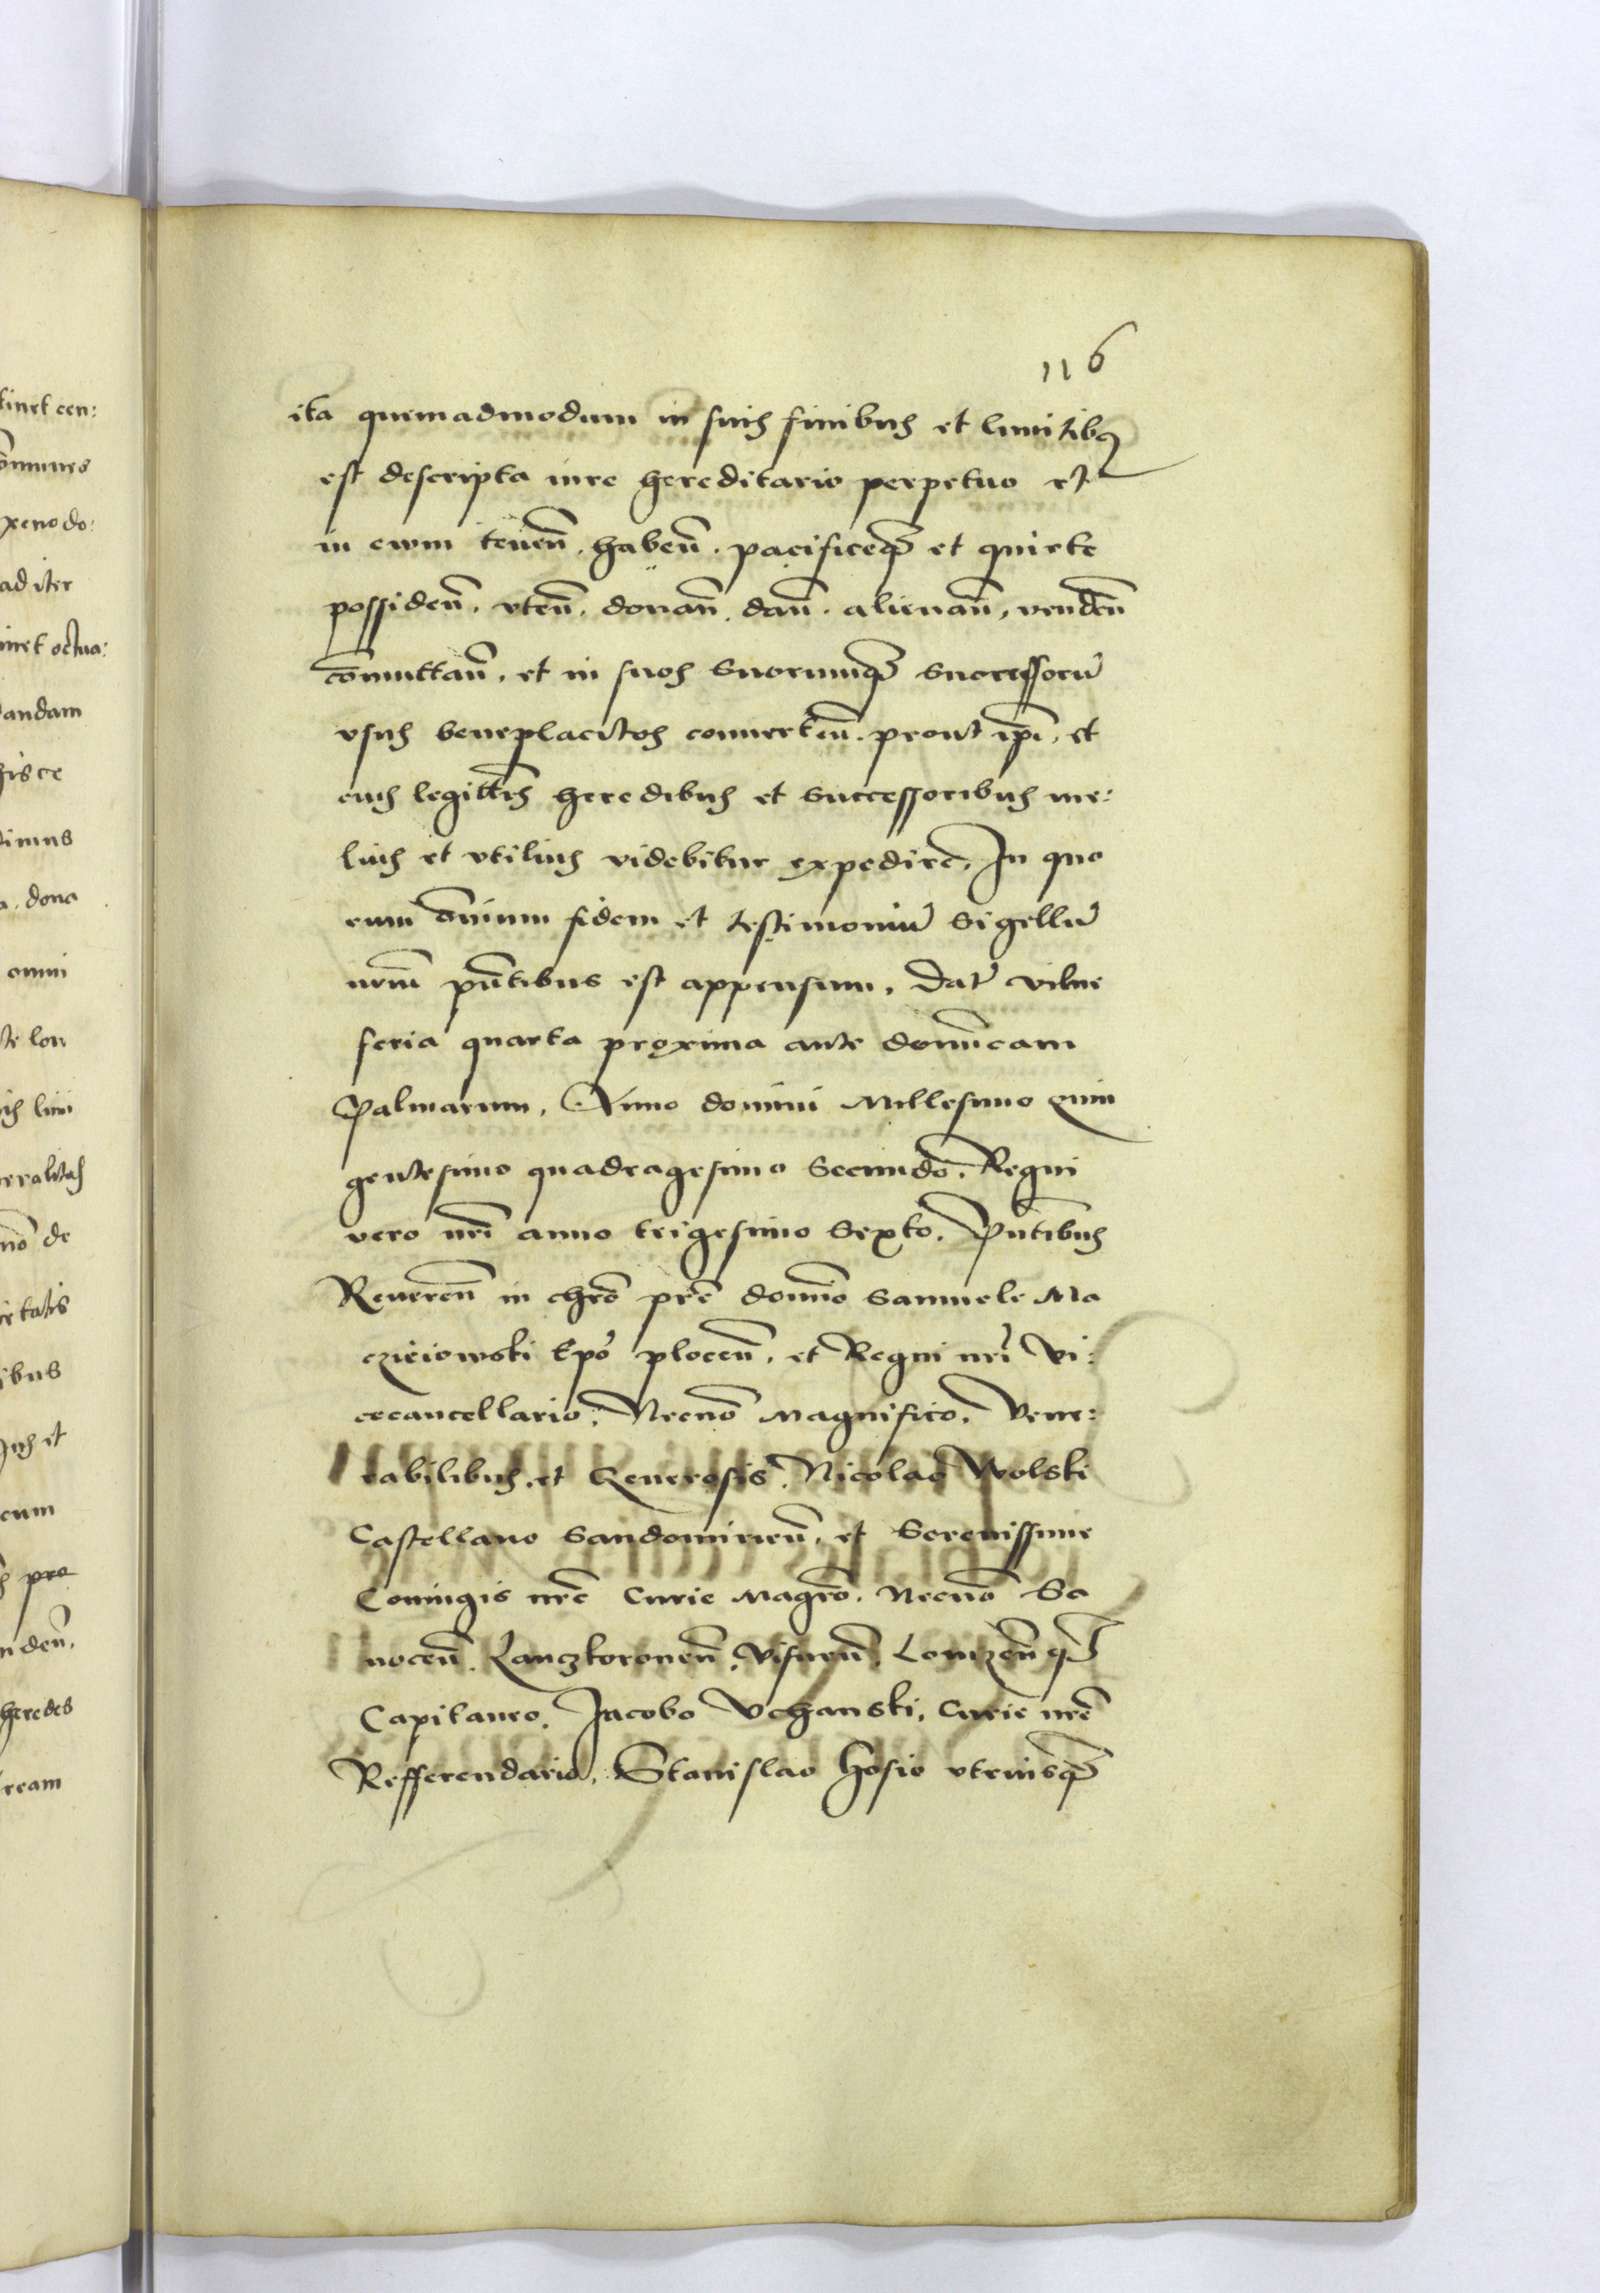 116
ita quemadmodum in suis finibus et limitibus
est descripta iure hereditario perpetuo et
in ewm teneñ. habeñ. pacificeqꝫ et quiete
possideñ. vteñ. donañ. dañ. alienañ, vendeñ
cōmuttañ. et in suos Suorumqꝫ Successorū
vsus beneplacitos conuerteñ. prout ip̄i, et
eius legitt̄is heredibus et Successoribus me:
lius et vtilius videbitur expedire. In quo
rum om̄ium fidem et testimoniū Sigellū
nrūm pn̄tibus est appensum. Dat̄ vilne
feria quarta proxima ante domīcam
Palmarum, Anno domini Millesimo quin
gentesimo quadragesimo Secundo. Regni
vero nr̄i anno trigesimo Sexto. Pn̄tibus
Reuereñ in chrō pr̄e domīo Samuele Ma
czieiowski Epō ploceñ. et Regni nr̄i Vi:
cecancellario. Necnō Magnifico. Vene:
rabilibus. et Generosis. Nicolao Wolski
Castellano Sandomirieñ. et Serenissime
Coniugis nr̄e Curie Magr̄o. Necnō Sa
noceñ. Lanczkoroneñ. Visneñ. Lomzeñqꝫ
Capitaneo. Jacobo Vchanski. Curie nr̄e
Refferendario. Stanislao Hosio vtriusqꝫ
tinet cen:
ōmunes
xenodo:
ad iter
andam
omni
cum
pro
ndeñ.
heredes
ream